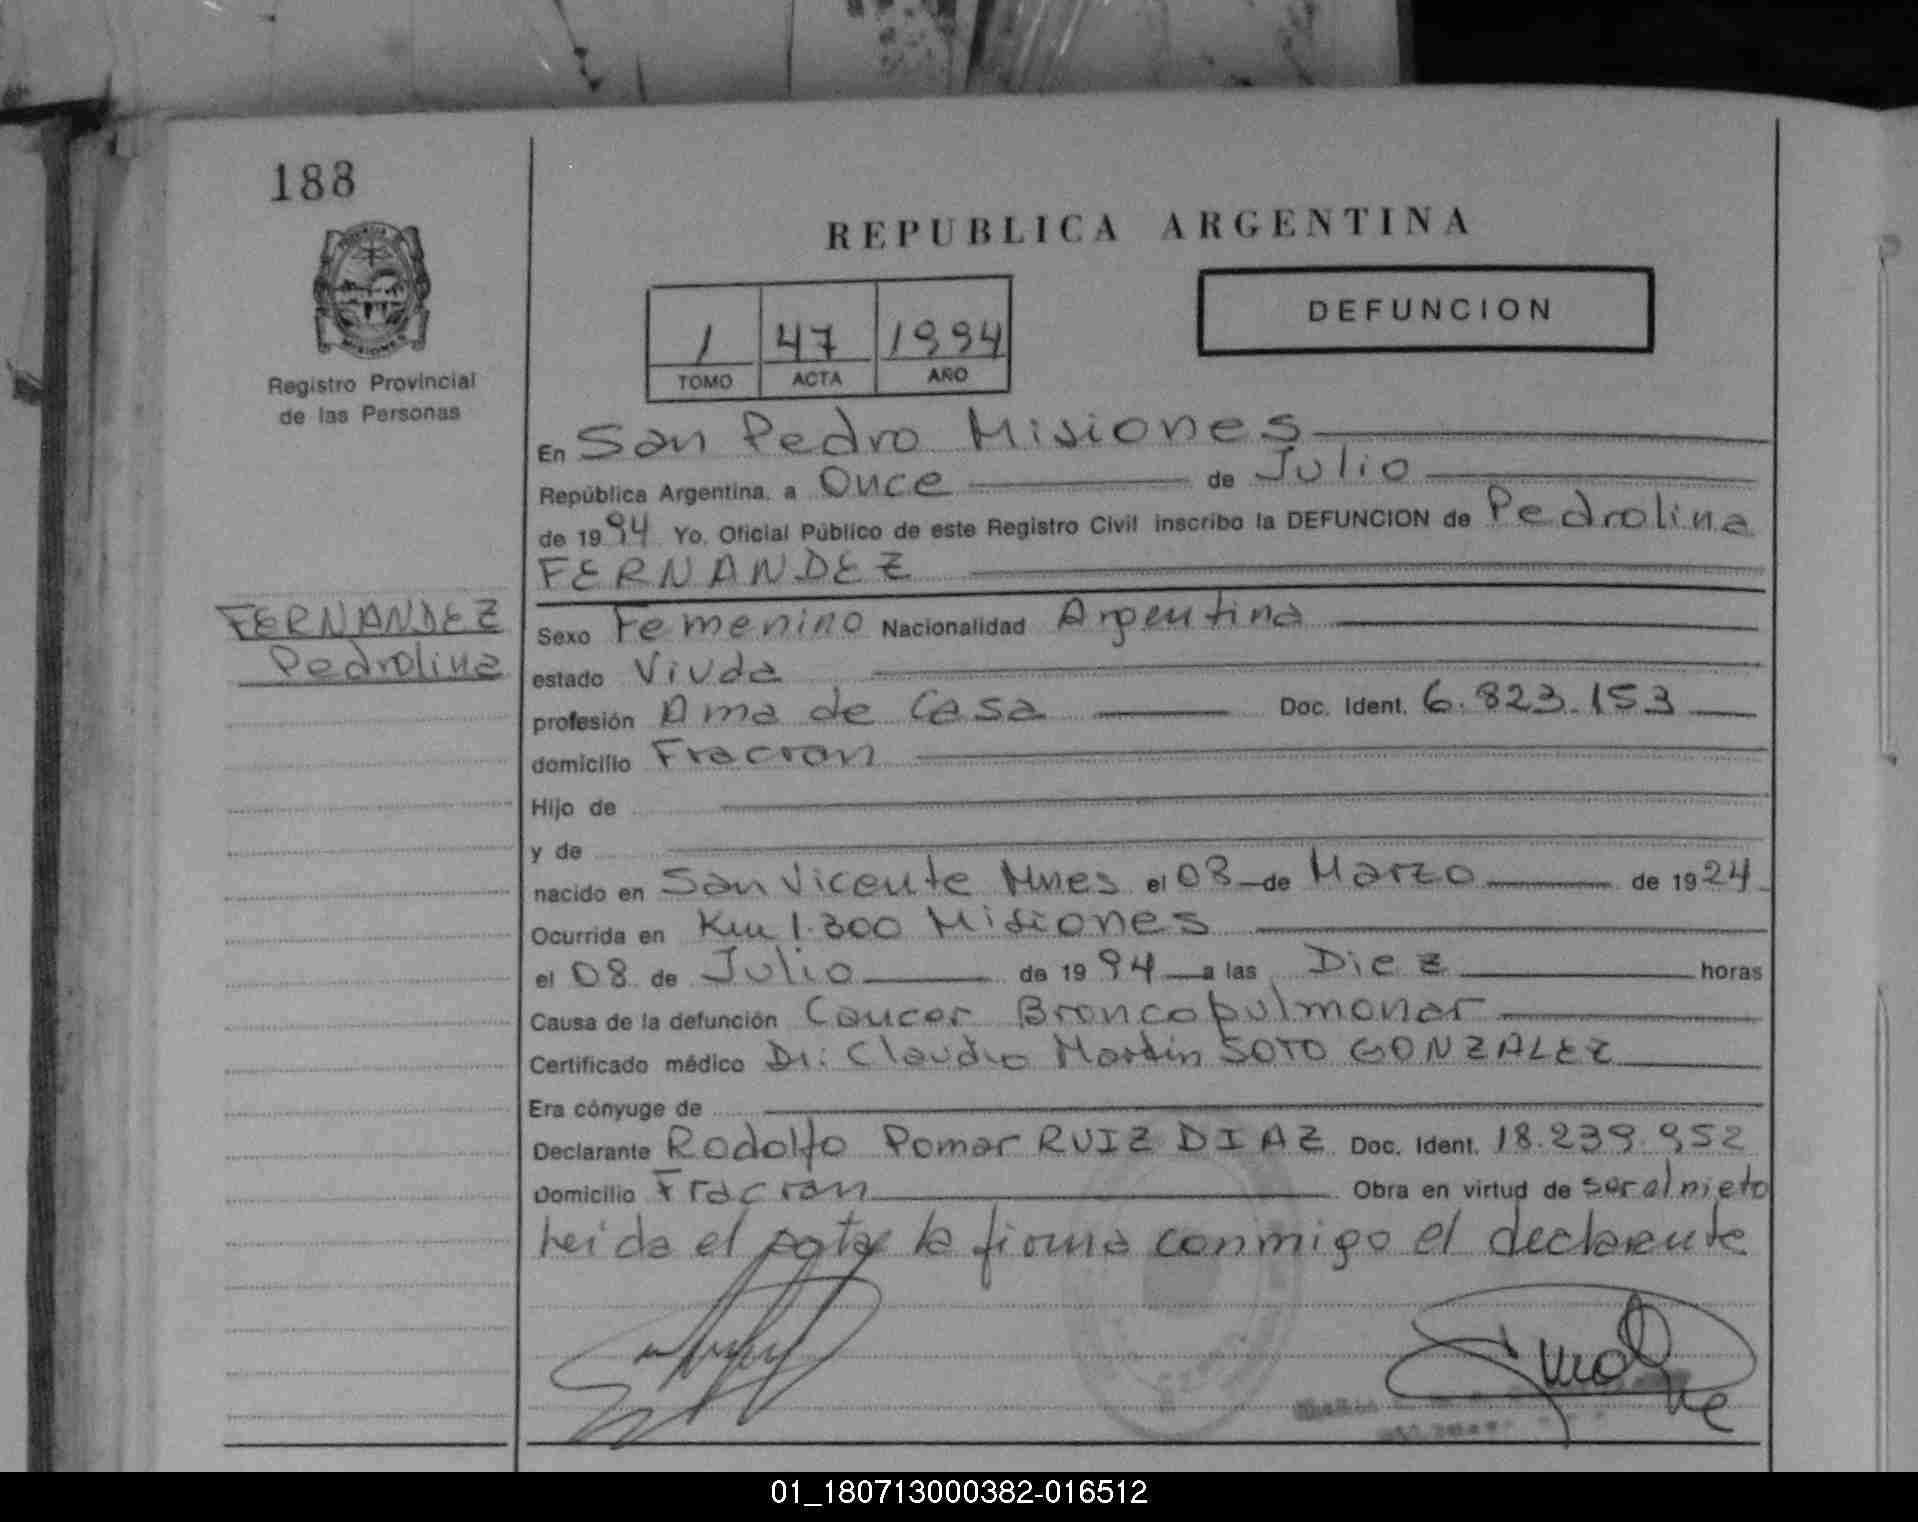 188
REPUBLICA ARGENTINA
DEFUNCION
1 47 1994
TOMO ACTA AÑO
Registro Provincial
de las Personas
En San Pedro Misiones
República Argentina, a Once de Julio
de 1994 Yo, Oficial Público de este Registro Civil inscribo la DEFUNCION de Pedrolina
FERNANDEZ
FERNANDEZ
Pedrolina
Sexo Femenino Nacionalidad Argentina
estado Viuda
profesión Ama de Casa Doc. Ident. 6.823.153
domicilio Fracran
Hijo de
y de
nacido en San Vicente Mnes el 08 de Marzo de 1924
Ocurrida en Km 1.300 Misiones
el 08 de Julio de 1994 a las Diez horas
Causa de la defunción Cancer Broncopulmonar
Certificado médico Dr: Claudio Martin SOTO GONZALEZ
Era cónyuge de
Declarante Rodolfo Pomar RUIZ DIAZ Doc. Ident. 18.239.952
Domicilio Fracran Obra en virtud de ser el nieto
Leida el acta la firma conmigo el declarante
01_180713000382-016512